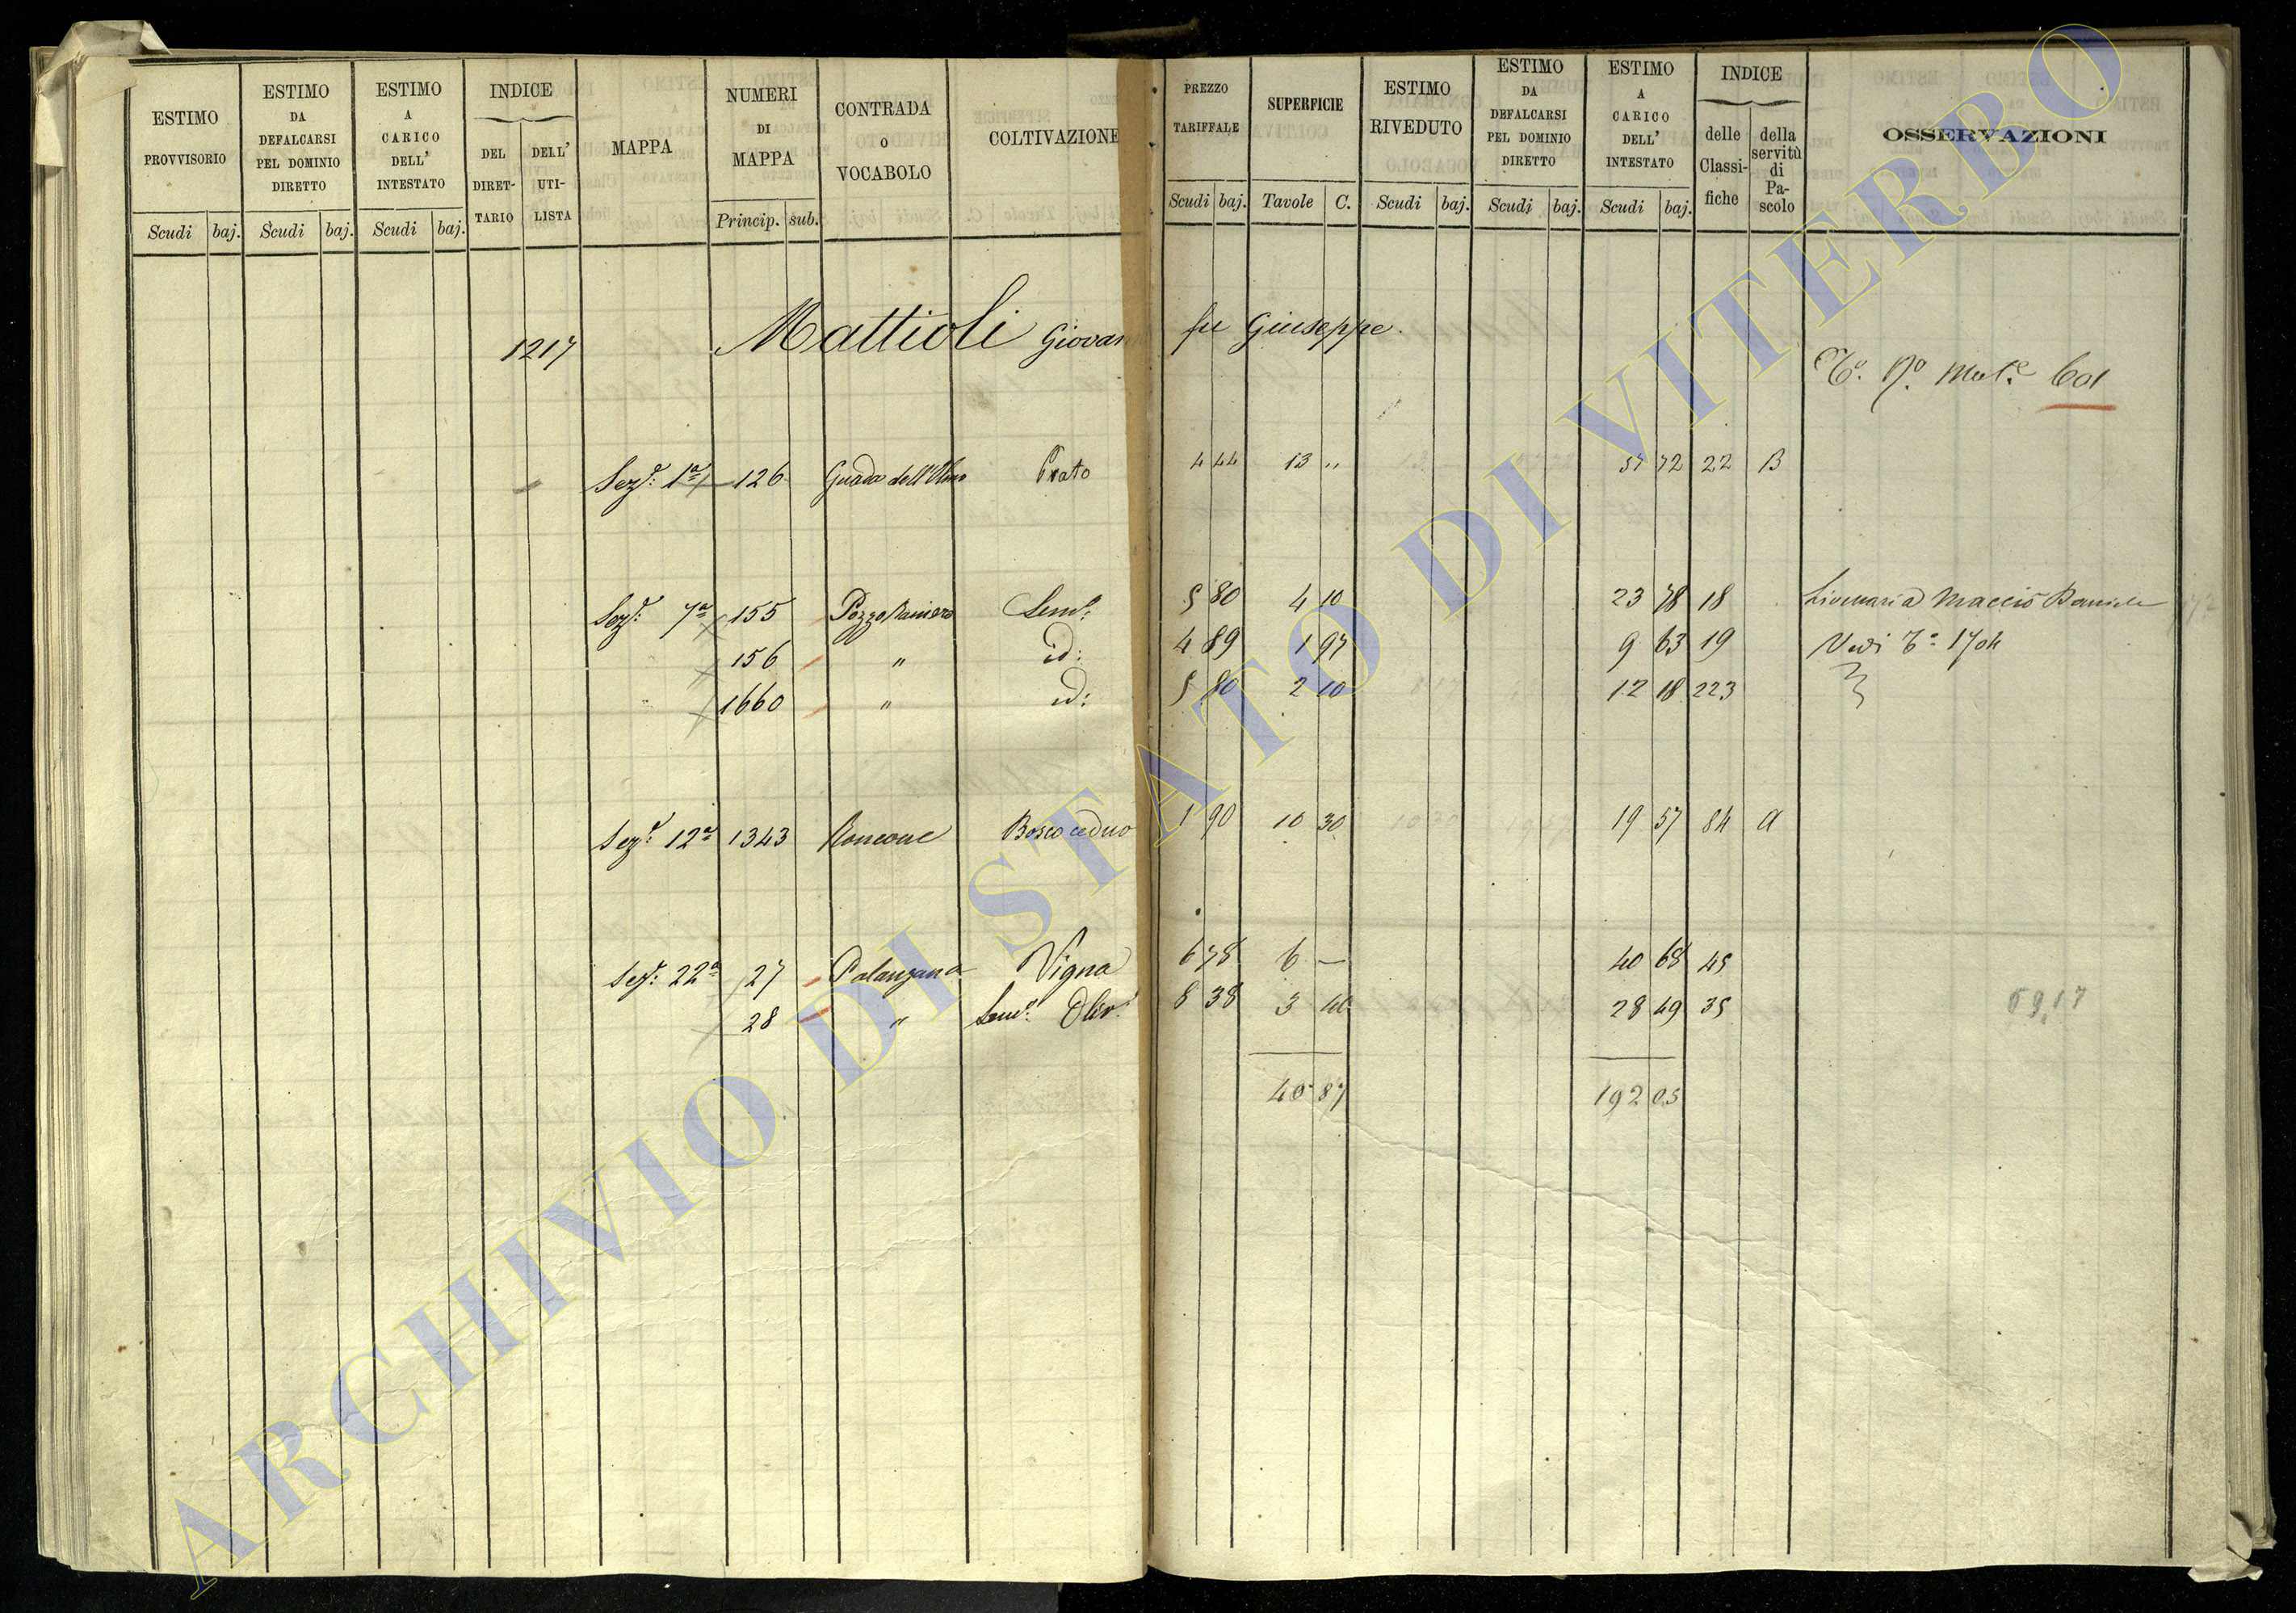 ESTIMO PROVVISORIO
ESTIMO DA DEFALCARSI PEL DOMINIO DIRETTO
ESTIMO A CARICO DELL' INTESTATO
INDICE
DEL DIRET-TARIO
DELL' UTI-LISTA
MAPPA
NUMERI DI MAPPA
CONTRADA o VOCABOLO
COLTIVAZIONE
PREZZO TARIFFALE
SUPERFICIE
ESTIMO RIVEDUTO
ESTIMO DA DEFALCARSI PEL DOMINIO DIRETTO
ESTIMO A CARICO DELL' INTESTATO
INDICE
delle Classi-fiche
della servitù di Pa-scolo
OSSERVAZIONI
Scudi baj. Scudi baj. Scudi baj. Princip. sub. Scudi baj. Tavole C. Scudi baj. Scudi baj. Scudi baj.
1217 Mattioli Giovanni fu Giuseppe
Mat.e 601
Sez.e 1a 126 Guado dell'Olmo Prato 4 44 13 " 57 72 22 B
Sez.e 7a 155 Pozzo Raniero Sem.o 5 80 4 10 23 78 18 Livellaria Macciò Daniele
156 " id: 4 89 1 97 9 63 19 Vedi 1704
1660 " id: 5 80 2 10 12 18 223
Sez.e 12a 1343 Roncone Bosco ceduo 1 90 10 30 19 57 84 A
Sez.e 22a 27 Palanzana Vigna 6 78 6 — 40 68 45
28 " Sem.o Oliv.o 8 38 3 40 28 49 35
69,17
40 87 192 05
ARCHIVIO DI STATO DI VITERBO